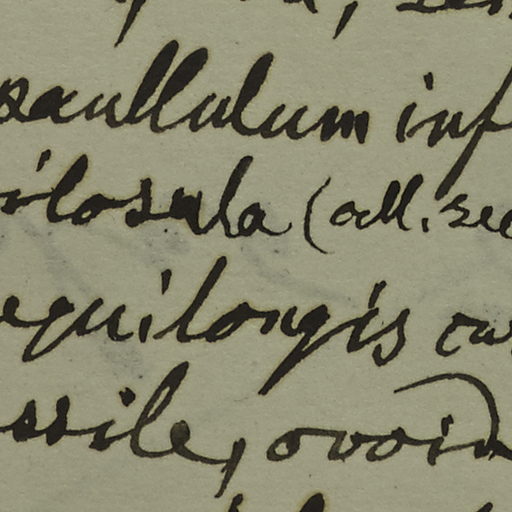 paullulum inf
ilosula (all. sec
equilongis cu
ssile, ovoid